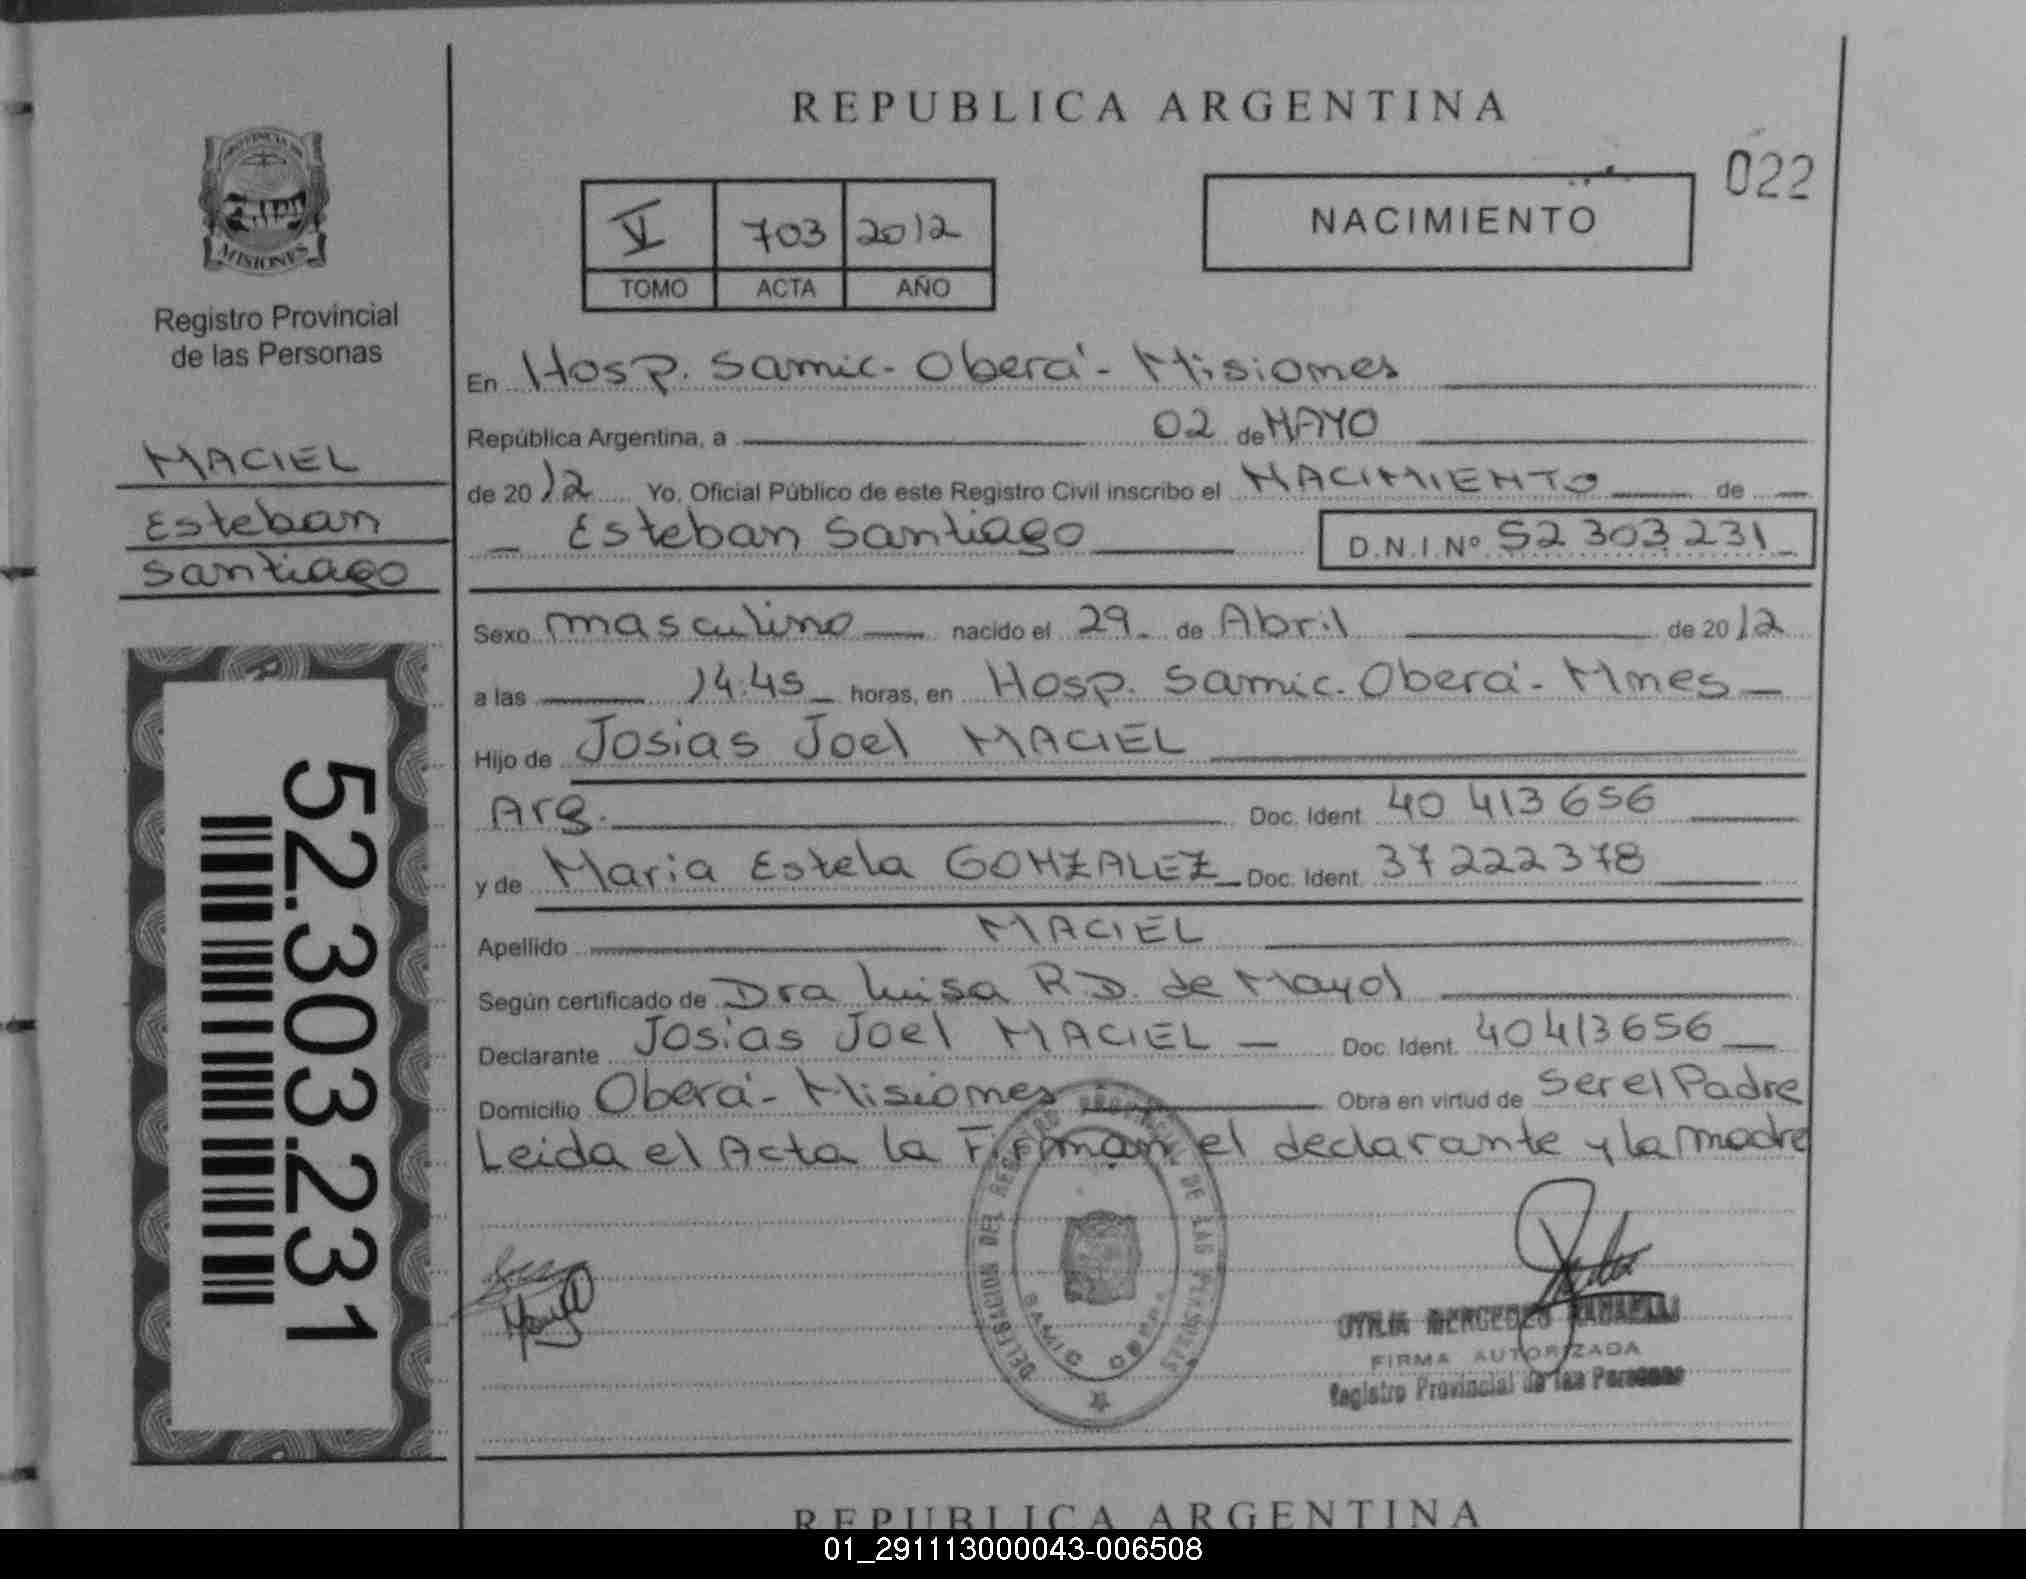 REPUBLICA ARGENTINA
022
PROVINCIA DE
MISIONES
Registro Provincial
de las Personas
MACIEL
Esteban
Santiago
52.303.231
V 703 2012
TOMO ACTA AÑO
NACIMIENTO
En Hosp. Samic - Oberá - Misiones
República Argentina, a 02 de MAYO
de 2012 Yo, Oficial Público de este Registro Civil inscribo el NACIMIENTO de
Esteban Santiago D.N.I.Nº 52 303 231
Sexo masculino nacido el 29 de Abril de 2012
a las 14:45 horas, en Hosp. Samic. Oberá - Mnes
Hijo de Josias Joel MACIEL
Arg. Doc. Ident 40 413 656
y de Maria Estela GONZALEZ Doc. Ident. 37222378
Apellido MACIEL
Según certificado de Dra Luisa R.D. de Mayol
Declarante Josias Joel MACIEL Doc. Ident. 40413656
Domicilio Oberá - Misiones Obra en virtud de Ser el Padre
Leida el Acta la Firman el declarante y la madre
DELEGACION DEL REGISTRO PROVINCIAL DE LAS PERSONAS
SAMIC OBERA
MERCEDES
FIRMA AUTORIZADA
Registro Provincial de las Personas
REPUBLICA ARGENTINA
01_291113000043-006508